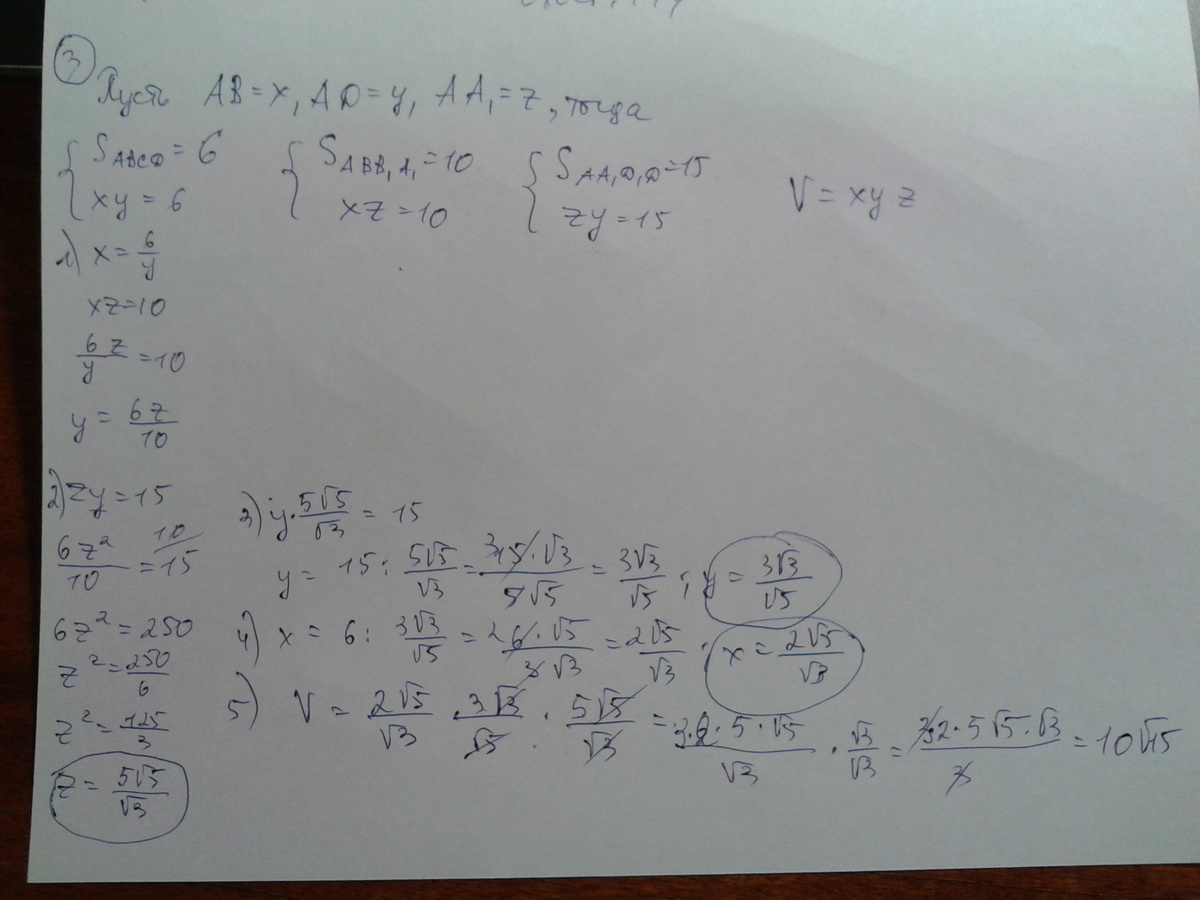 ③
Пусть AB = x, AD = y, AA₁ = z, тогда
{ S_ABCD = 6
xy = 6
{ S_ABB₁A₁ = 10
xz = 10
{ S_AA₁D₁D = 15
zy = 15
V = xyz
1) x = 6/y
xz = 10
6z/y = 10
y = 6z/10
2) zy = 15
6z²/10 = 15 10/
6z² = 250
z² = 250/6
z² = 125/3
z = 5√5/√3
3) y · 5√5/√3 = 15
y = 15 : 5√5/√3 = 15·√3/5√5 = 3√3/√5 ; y = 3√3/√5
4) x = 6 : 3√3/√5 = 6·√5/3√3 = 2√5/√3 ; x = 2√5/√3
5) V = 2√5/√3 · 3√3/√5 · 5√5/√3 = 3·2·5·√5/√3 · √3/√3 = 3·2·5√5·√3/3 = 10√15